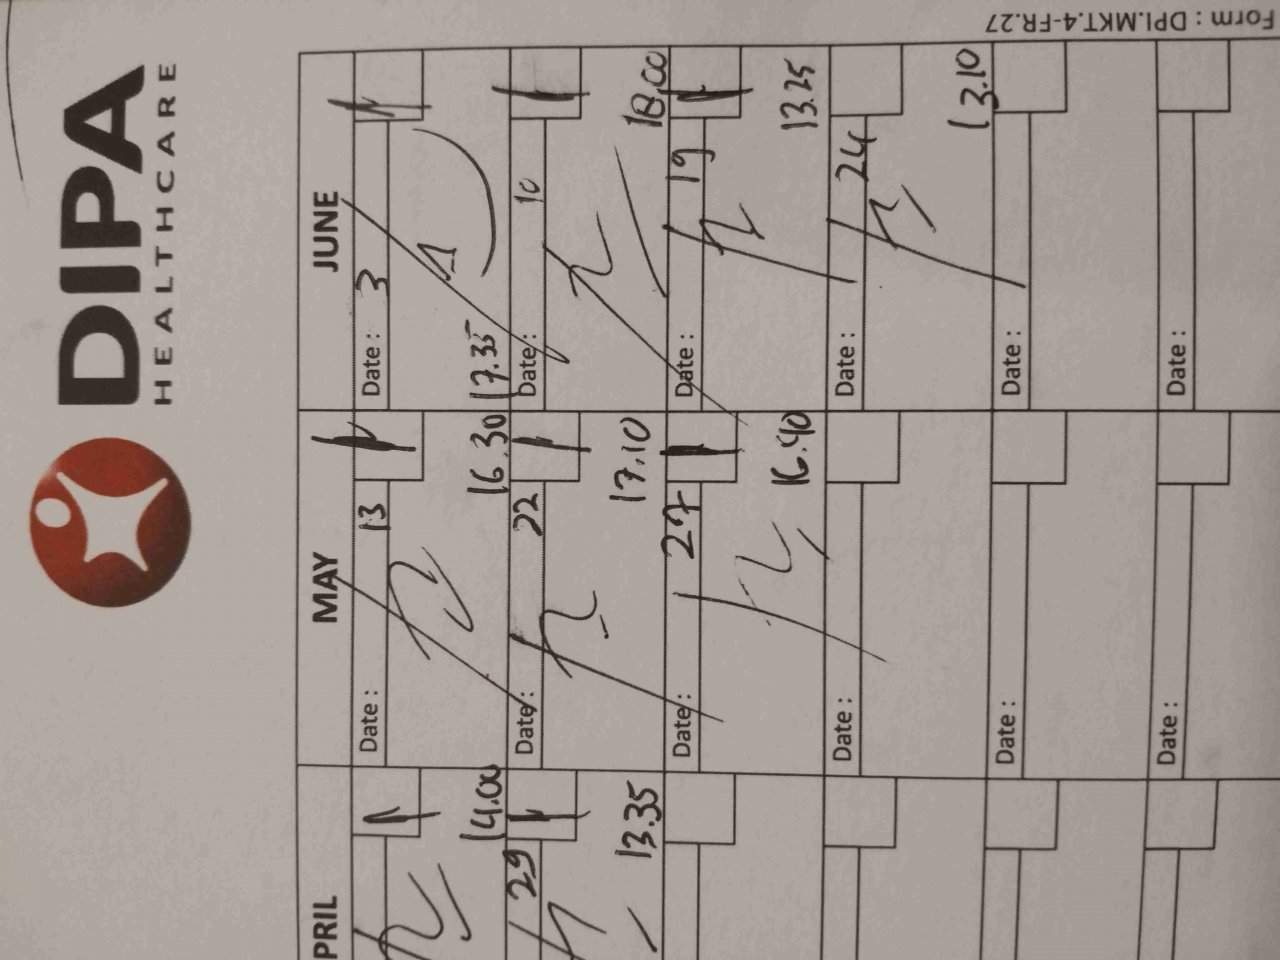 DIPA
HEALTHCARE
Form : DPI.MKT.4-FR.27
PRIL MAY JUNE
Date : 13 Date : 3
14.00 16.30 17.35
29 Date : 22 Date : 10
13.35 17.10 18.00
Date : 27 Date : 19
16.40 13.25
Date : Date : 24
13.10
Date : Date :
Date : Date :